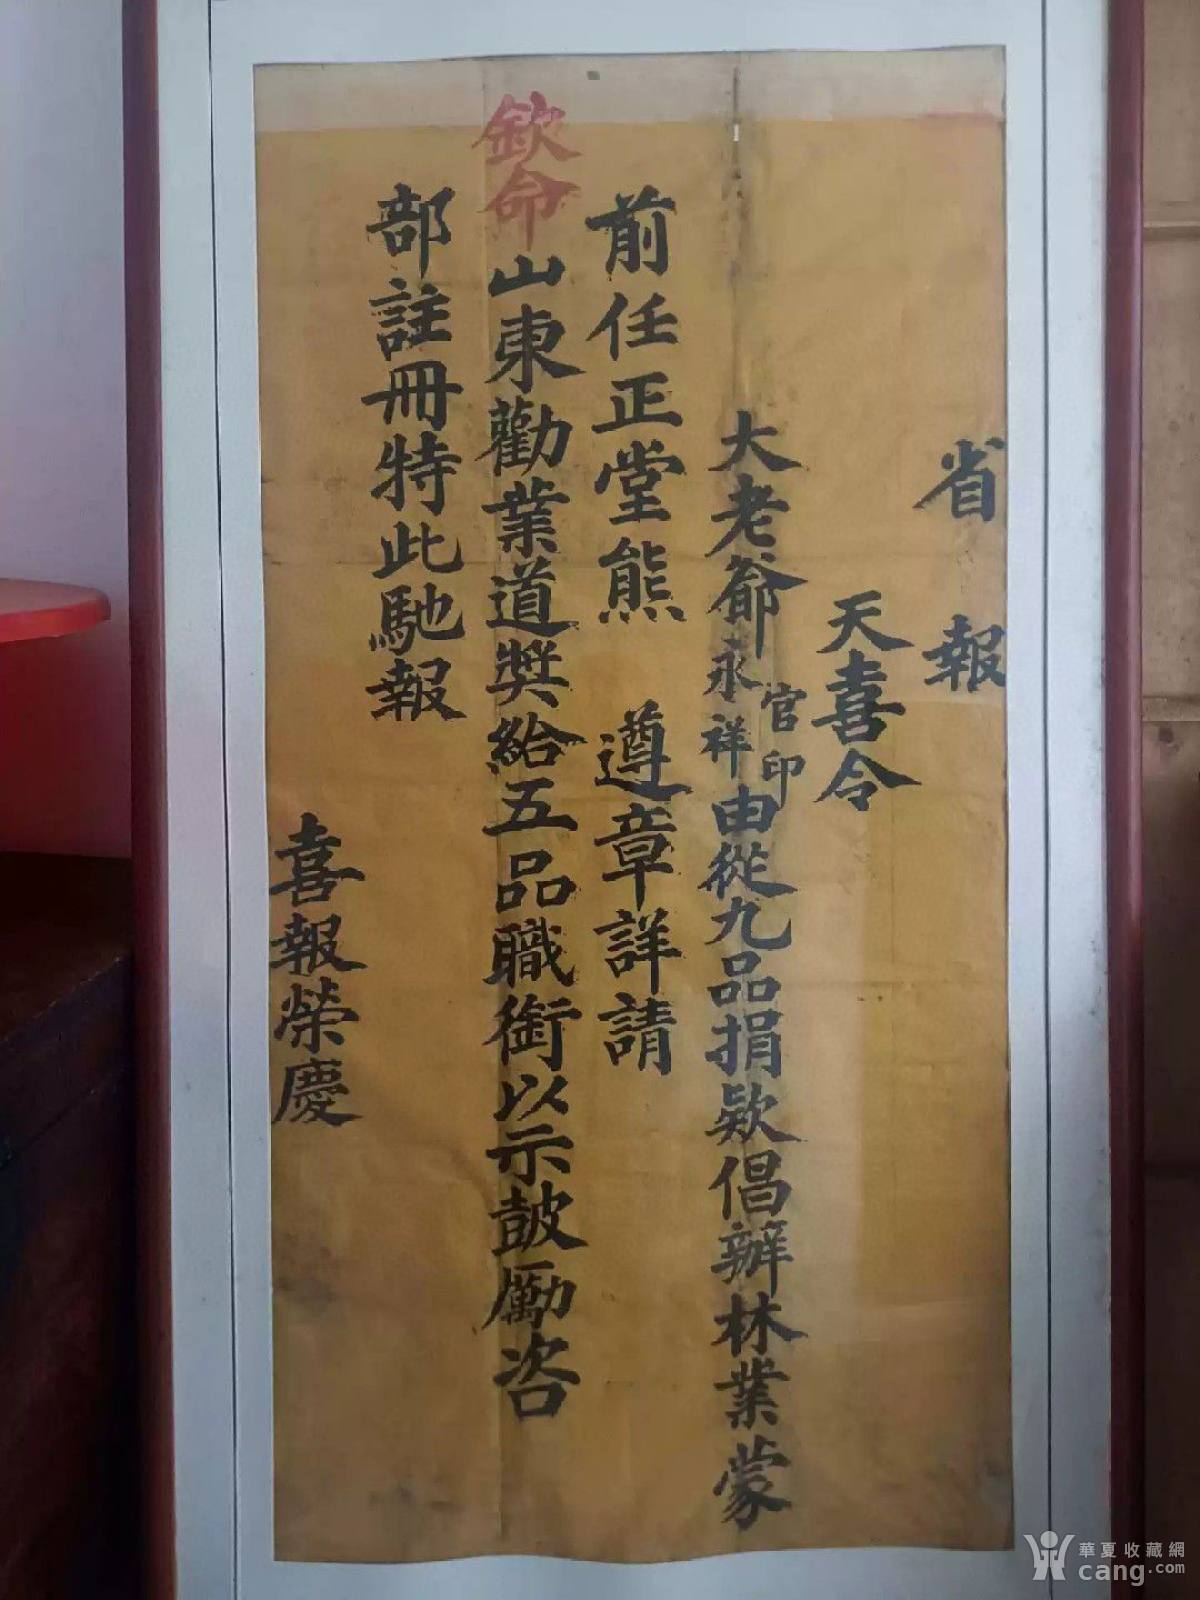 省報
天喜令
大老爺官印永祥由從九品捐欵倡辦林業蒙
前任正堂熊 遵章詳請
欽命山東勸業道獎給五品職銜以示鼓勵咨
部註冊特此馳報
喜報榮慶
華夏收藏網
cang.com